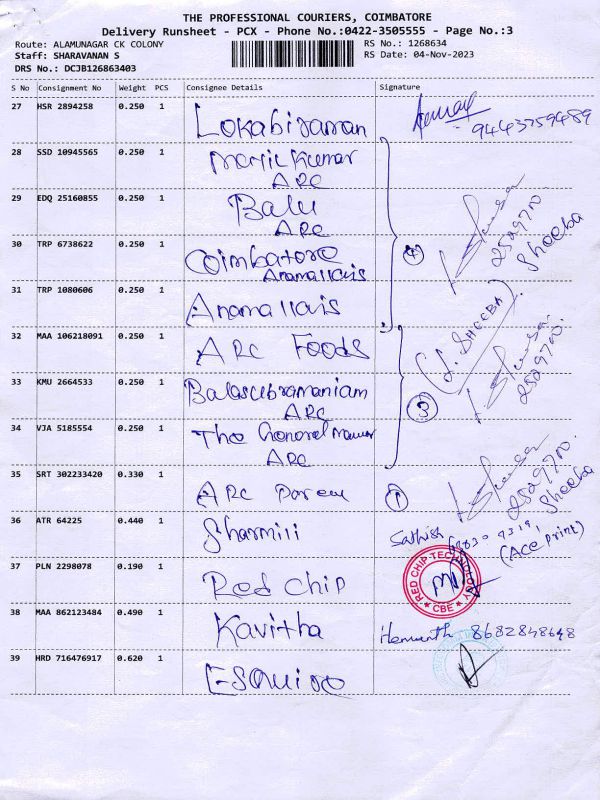 THE PROFESSIONAL COURIERS, COIMBATORE
Delivery Runsheet - PCX - Phone No.:0422-3505555 - Page No.:3
Route: ALAMUNAGAR CK COLONY RS No.: 1268634
Staff: SHARAVANAN S RS Date: 04-Nov-2023
DRS No.: DCJB126863403
S No Consignment No Weight PCS Consignee Details Signature
27 HSR 2894258 0.250 1 Lokabiraman 9443759489
28 SSD 10945565 0.250 1 Kumar
ARC
29 EDQ 25160855 0.250 1 Balu
ARC
30 TRP 6738622 0.250 1 Coimbatore
Anamallais
④ 2529710 Sheeba
31 TRP 1080606 0.250 1 Anamallais
32 MAA 106218091 0.250 1 ARC Foods
(J. SHEEBA)
33 KMU 2664533 0.250 1 Balasubramaniam
ARC
③ 2529700.
34 VJA 5185554 0.250 1 The General
ARC
35 SRT 302233420 0.330 1 ARC ① Sheeba
36 ATR 64225 0.440 1 Sharmili Sathish
(Ace print)
37 PLN 2298078 0.190 1 Red Chip RED CHIP TECHNOLOGY
CBE
38 MAA 862123484 0.490 1 Kavitha Hemanth 8682848648
39 HRD 716476917 0.620 1 Esquiro